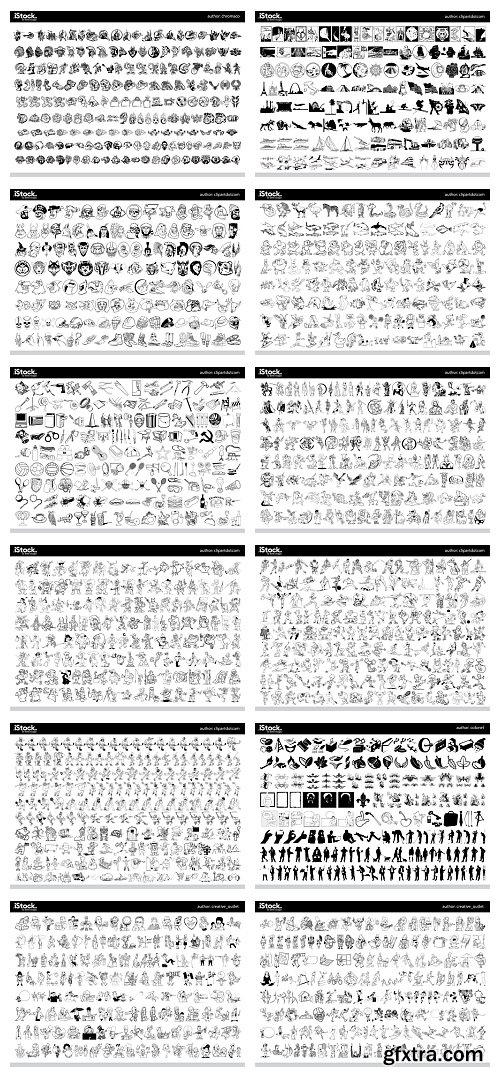 iStock. author: chromaco
iStock. author: clipartdotcom
iStock. author: clipartdotcom
iStock. author: clipartdotcom
iStock. author: clipartdotcom
iStock. author: clipartdotcom
iStock. author: clipartdotcom
iStock. author: clipartdotcom
iStock. author: clipartdotcom
iStock.
iStock. author: creative_outlet
iStock. author: creative_outlet
gfxtra.com